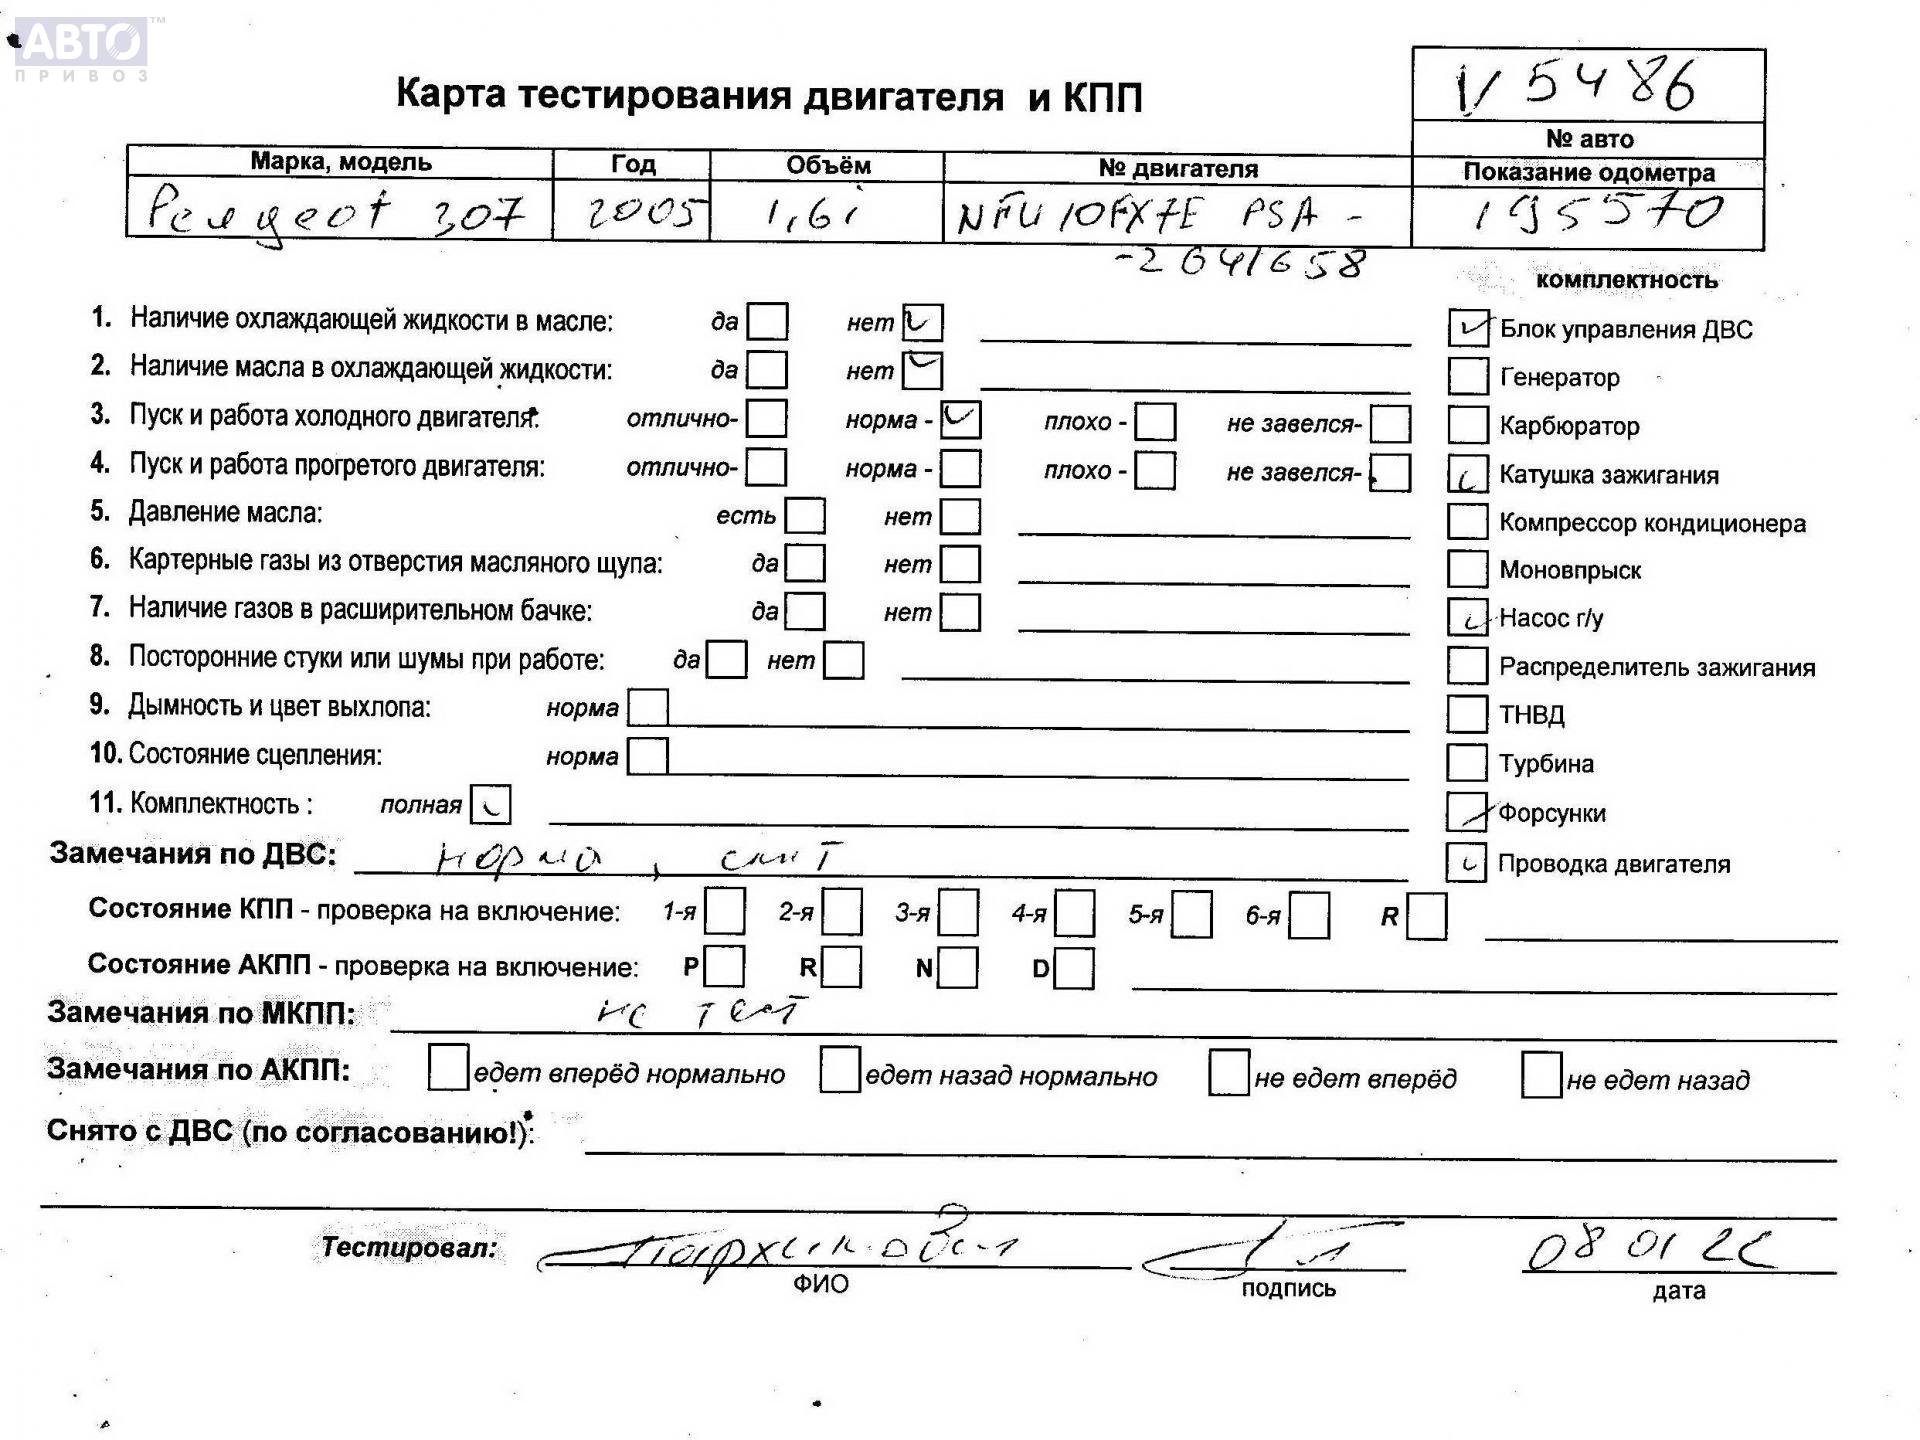 АВТО™
ПРИВОЗ
Карта тестирования двигателя и КПП
V 5486
№ авто
Марка, модель Год Объём № двигателя Показание одометра
Peugeot 307 2005 1,6i NFU 10FX7E PSA - 195570
-2641658
комплектность
1. Наличие охлаждающей жидкости в масле: да нет Блок управления ДВС
2. Наличие масла в охлаждающей жидкости: да нет Генератор
3. Пуск и работа холодного двигателя: отлично- норма - плохо - не завелся- Карбюратор
4. Пуск и работа прогретого двигателя: отлично- норма - плохо - не завелся- Катушка зажигания
5. Давление масла: есть нет Компрессор кондиционера
6. Картерные газы из отверстия масляного щупа: да нет Моновпрыск
7. Наличие газов в расширительном бачке: да нет Насос г/у
8. Посторонние стуки или шумы при работе: да нет Распределитель зажигания
9. Дымность и цвет выхлопа: норма ТНВД
10. Состояние сцепления: норма Турбина
11. Комплектность : полная Форсунки
Замечания по ДВС: норма, Проводка двигателя
Состояние КПП - проверка на включение: 1-я 2-я 3-я 4-я 5-я 6-я R
Состояние АКПП - проверка на включение: P R N D
Замечания по МКПП: не тест
Замечания по АКПП: едет вперёд нормально едет назад нормально не едет вперёд не едет назад
Снято с ДВС (по согласованию!):
Тестировал: 08 01 22
ФИО подпись дата